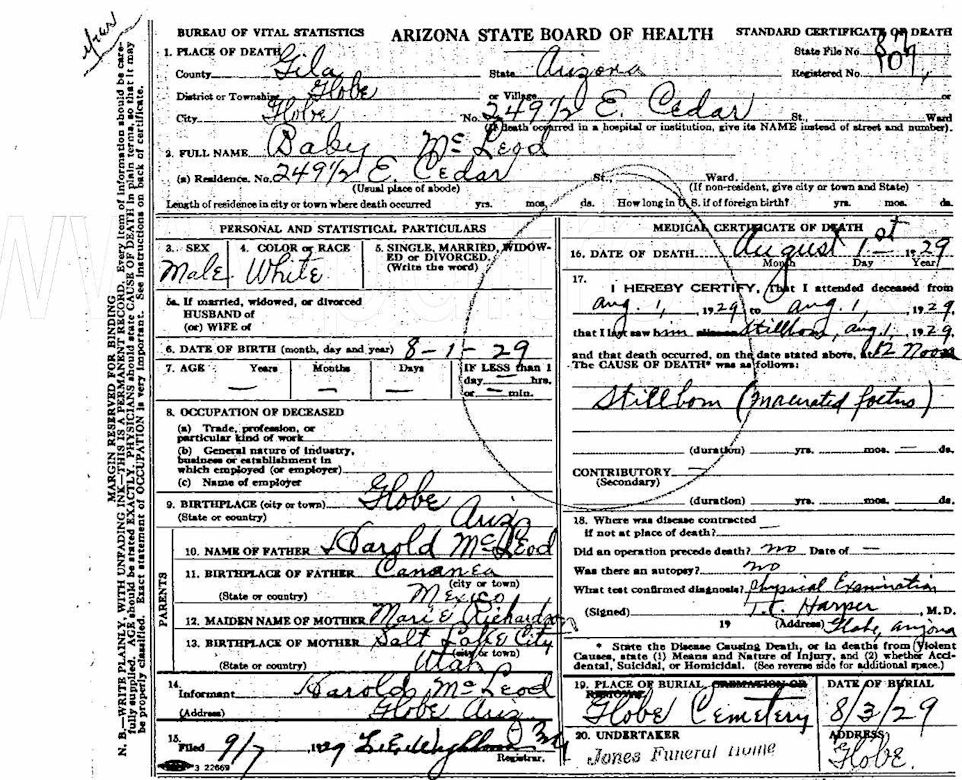 BUREAU OF VITAL STATISTICS ARIZONA STATE BOARD OF HEALTH STANDARD CERTIFICATE OF DEATH
1. PLACE OF DEATH State File No.
County Gila State Arizona Registered No. 107
District or Township Globe or Village or
City Globe No. 249 1/2 E. Cedar St., Ward
(If death occurred in a hospital or institution, give its NAME instead of street and number).
2. FULL NAME Baby McLeod
(a) Residence. No. 249 1/2 E. Cedar St., Ward.
(Usual place of abode) (If non-resident, give city or town and State)
Length of residence in city or town where death occurred yrs. mos. ds. How long in U. S. if of foreign birth? yrs. mos. ds.
PERSONAL AND STATISTICAL PARTICULARS
3. SEX 4. COLOR or RACE 5. SINGLE, MARRIED, WIDOW-
ED or DIVORCED.
(Write the word)
Male White
5a. If married, widowed, or divorced
HUSBAND of
(or) WIFE of
6. DATE OF BIRTH (month, day and year) 8-1-29
7. AGE Years Months Days IF LESS than 1
day — hrs.
or — min.
8. OCCUPATION OF DECEASED
(a) Trade, profession, or
particular kind of work
(b) General nature of industry,
business or establishment in
which employed (or employer)
(c) Name of employer
9. BIRTHPLACE (city or town) Globe
(State or country) Ariz
PARENTS
10. NAME OF FATHER Harold McLeod
11. BIRTHPLACE OF FATHER Cananea
(city or town)
(State or country) Mexico
12. MAIDEN NAME OF MOTHER Marie Richardson
13. BIRTHPLACE OF MOTHER Salt Lake City
(city or town)
(State or country) Utah
14.
Informant Harold McLeod
(Address) Globe Ariz
15.
Filed 9/7, 1929
Registrar.
3 22669
MEDICAL CERTIFICATE OF DEATH
16. DATE OF DEATH August 1st 1929
Month Day Year
17.
I HEREBY CERTIFY, That I attended deceased from
Aug. 1, 1929 to Aug 1, 1929,
that I last saw him alive on Stillborn, Aug 1, 1929,
and that death occurred, on the date stated above, at 12 Noon
The CAUSE OF DEATH* was as follows:
Stillborn (macerated foetus)
(duration) yrs. mos. — ds.
CONTRIBUTORY —
(Secondary)
(duration) yrs. mos. ds.
18. Where was disease contracted
if not at place of death? —
Did an operation precede death? no Date of —
Was there an autopsy? no
What test confirmed diagnosis? Physical Examination
(Signed) T.C. Harper, M.D.
19 (Address) Globe, Arizona
* State the Disease Causing Death, or in deaths from Violent
Causes, state (1) Means and Nature of Injury, and (2) whether Acci-
dental, Suicidal, or Homicidal. (See reverse side for additional space.)
19. PLACE OF BURIAL, CREMATION OR
REMOVAL
Globe Cemetery
DATE OF BURIAL
8/3/29
20. UNDERTAKER
Jones Funeral Home
ADDRESS
Globe.
MARGIN RESERVED FOR BINDING
N. B.—WRITE PLAINLY, WITH UNFADING INK—THIS IS A PERMANENT RECORD. Every item of information should be care-
fully supplied. AGE should be stated EXACTLY. PHYSICIANS should state CAUSE OF DEATH in plain terms, so that it may
be properly classified. Exact statement of OCCUPATION is very important. See instructions on back of certificate.